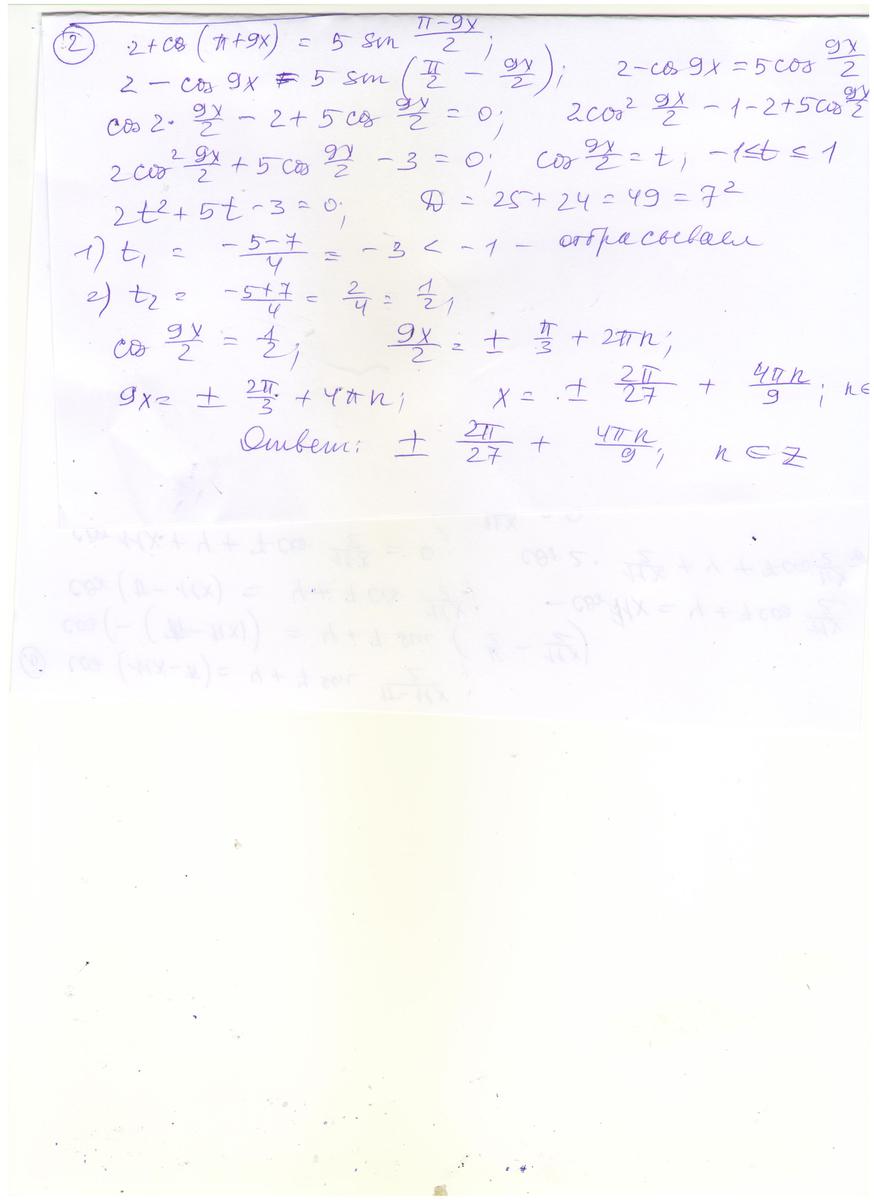 ② 2+cos(π+9x) = 5 sin (π-9x)/2;
2 - cos 9x = 5 sin (π/2 - 9x/2); 2-cos 9x = 5cos 9x/2
cos 2· 9x/2 - 2 + 5 cos 9x/2 = 0; 2cos² 9x/2 - 1 - 2 + 5cos 9x/2
2cos² 9x/2 + 5cos 9x/2 - 3 = 0; cos 9x/2 = t; -1≤t≤1
2t²+5t-3=0; D = 25+24=49=7²
1) t₁ = (-5-7)/4 = -3 < -1 - отбрасываем
2) t₂ = (-5+7)/4 = 2/4 = 1/2;
cos 9x/2 = 1/2; 9x/2 = ± π/3 + 2πn;
9x = ± 2π/3 + 4πn; x = ± 2π/27 + 4πn/9; n∈
Ответ: ± 2π/27 + 4πn/9; n ∈ Z